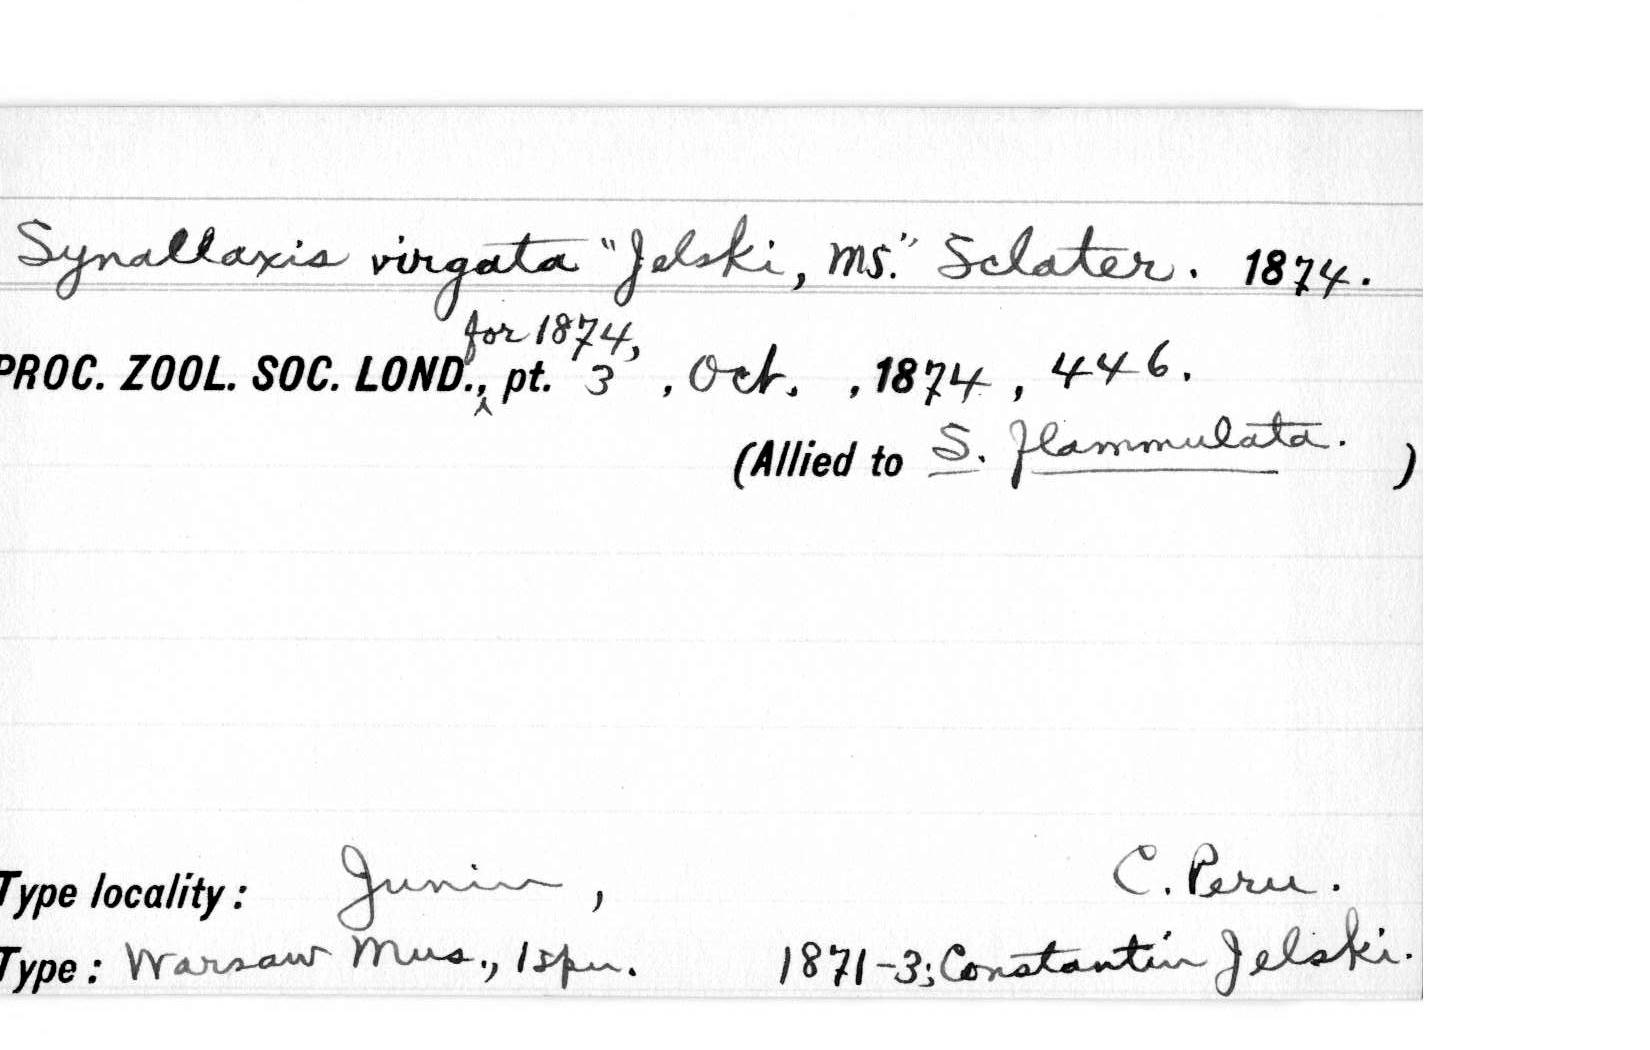 Synallaxis virgata "Jelski, ms." Sclater. 1874.
for 1874,
PROC. ZOOL. SOC. LOND., pt. 3 , Oct. , 1874 , 446.
(Allied to S. flammulata. )
Type locality: Junin , C. Peru.
Type: Warsaw Mus., 1 spn. 1871-3; Constantin Jelski.